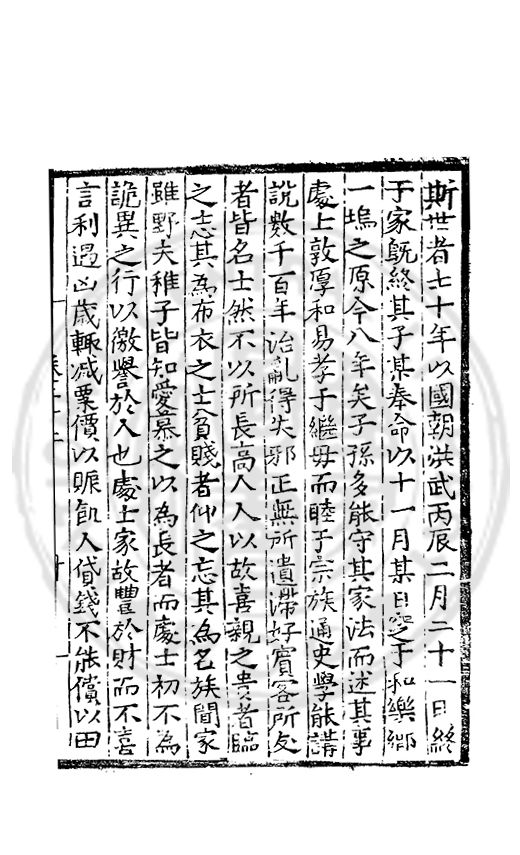 斯世者七十年以國朝洪武丙辰二月二十一日終
于家既終其子某奉命以十一月某日窆于和樂鄉
一塢之原今八年矣子孫多能守其家法而述其事
處士敦厚和易孝于繼母而睦于宗族通史學能講
說數千百年治亂得失邪正無所遺滯好賓客所处
者皆名士然不以所長高人人以故喜親之貴者臨
之忘其為布衣之士貧賤者仰之忘其為名族閭家
雖野夫稚子皆知愛慕之以為長者而處士初不為
詭異之行以徼譽於人也處士家故豐於財而不喜
言利遇凶歲輙减粟價以賑飢人貸錢不能償以田